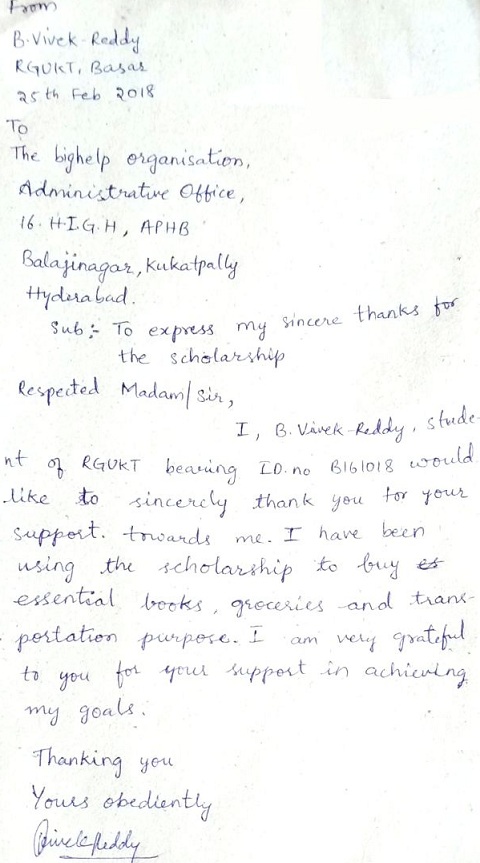 From
B.Vivek-Reddy
RGUKT, Basar
25th Feb 2018
To
The bighelp organisation,
Administrative Office,
16. H.I.G.H, APHB
Balajinagar, Kukatpally
Hyderabad.
Sub:- To express my sincere thanks for
the scholarship
Respected Madam/Sir,
I, B. Vivek-Reddy, stude-
nt of RGUKT bearing ID.no B161018 would
like to sincerely thank you for your
support. towards me. I have been
using the scholarship to buy es
essential books, groceries and trans-
portation purpose. I am very grateful
to you for your support in achieving
my goals.
Thanking you
Yours obediently
VivekReddy